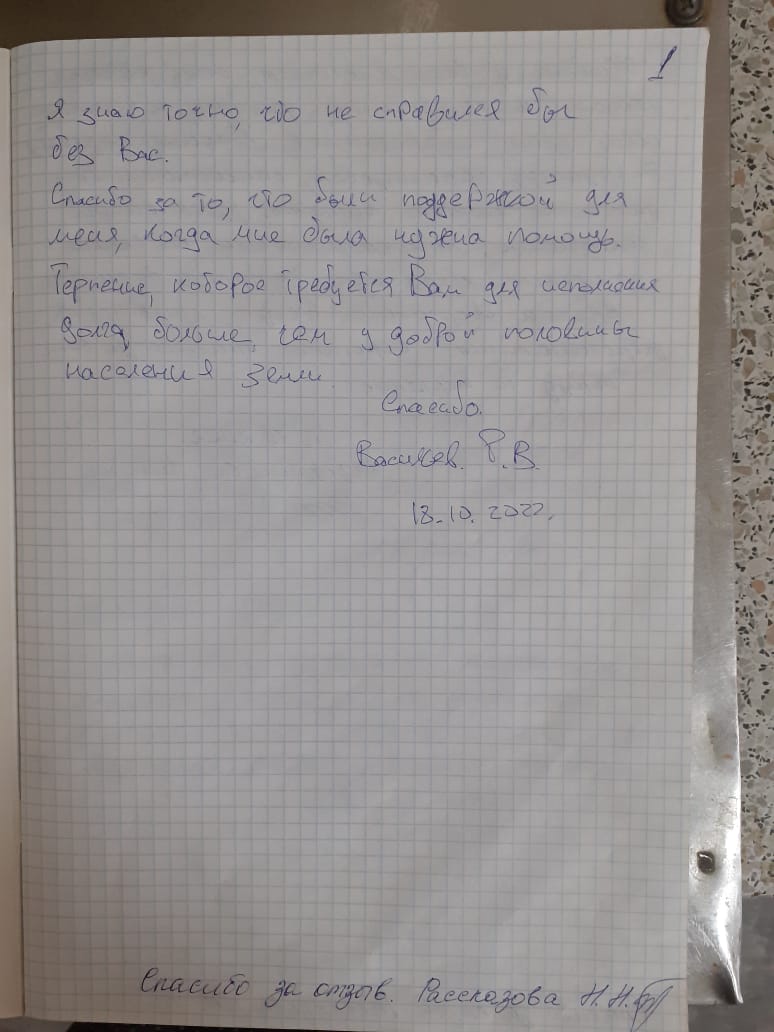 1
Я знаю точно, что не справился бы
без Вас.
Спасибо за то, что были поддержкой для
меня, когда мне была нужна помощь.
Терпение, которое требуется Вам для исполнения
долга, больше, чем у доброй половины
населения Земли.
Спасибо.
Васильев. Р.В.
18.10.2022.
Спасибо за отзыв. Рассказова Н.Н.